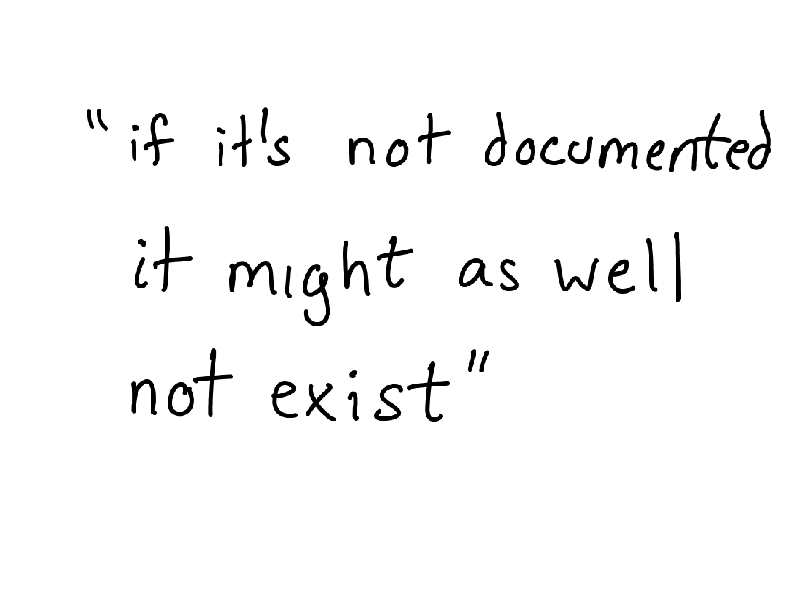 "if it's not documented
it might as well
not exist"